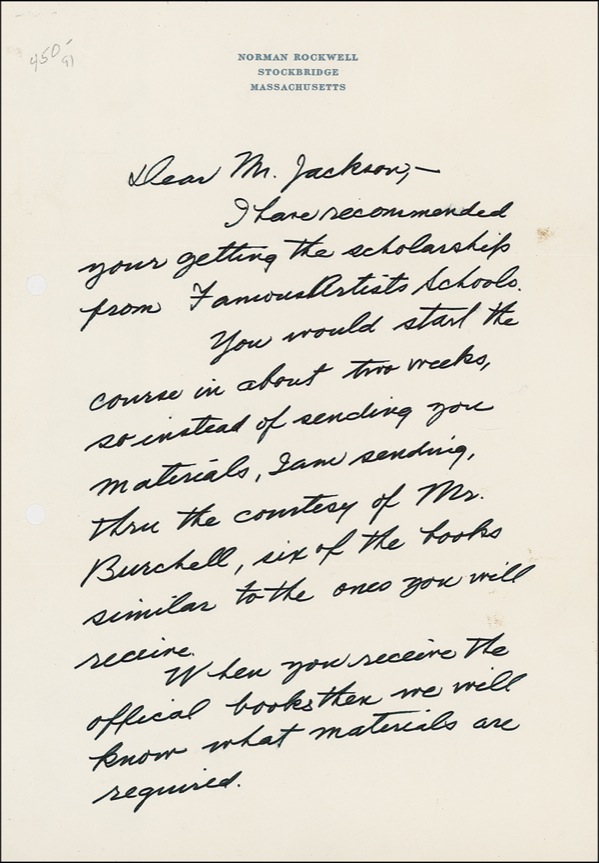 450-
91
NORMAN ROCKWELL
STOCKBRIDGE
MASSACHUSETTS
Dear Mr. Jackson,—
I have recommended
your getting the scholarship
from Famous Artists Schools.
You would start the
course in about two weeks,
so instead of sending you
materials, I am sending,
thru the courtesy of Mr.
Burchell, six of the books
similar to the ones you will
receive.
When you receive the
offical books then we will
know what materials are
required.